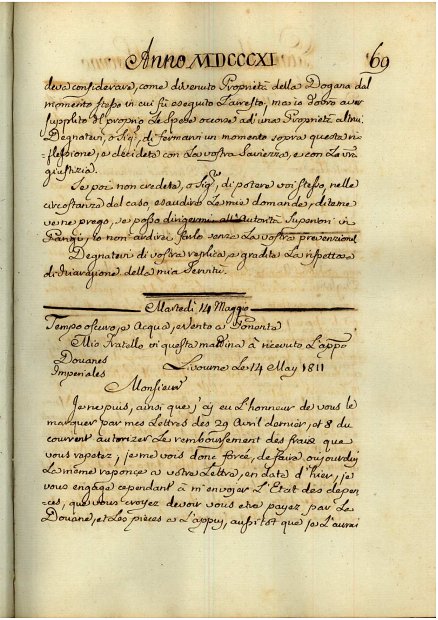 Anno MDCCCXI
69
deva considerare, come divenuto Proprietà della Dogana dal
momento stesso in cui fu eseguito L'arresto, ma io dovrò aver
supplito del proprio Le Spese occorse ad una Proprietà altrui.
Degnatevi, o Sigri, di fermarvi un momento sopra questa ri-
flessione, e decidete con La vostra Saviezza, e con La vra
giustizia.
Se poi non credete, o Sigri, di potere voi stessi, nelle
circostanze del caso, esaudire Le mie domande, ditene
ve ne prego, se posso dirigermi all'Autorità Superiori in
Parigi, io non ardirei farlo senza La vostra prevenzione.
Degnatevi di vostra replica, e gradite La rispettosa
dichiarazione della mia Servitù.
Martedi 14 Maggio
Tempo oscuro, e Acqua, e vento a Ponente
Mio Fratello in questa mattina à ricevuto L'appo
Douanes
Imperiales
Livourne Le 14 May 1811
Monsieur
Je ne puis, ainsi que j'aj eu L'honneur de vous le
marquer par mes Lettres des 29 Avril dernier, et 8 du
courrent autorizer Le remboursement des fraix que
vous repetez, je me vois donc forcé, de faire aujourduj
Le même reponce a votre Lettre, en date d'hier, je
vous engage cependant à m'envojer L'Etat des depen-
ces, que vous croyez devoir vous etre payez par Le
Douane, et Les pieces a L'appuj, aussitot que je L'aurai